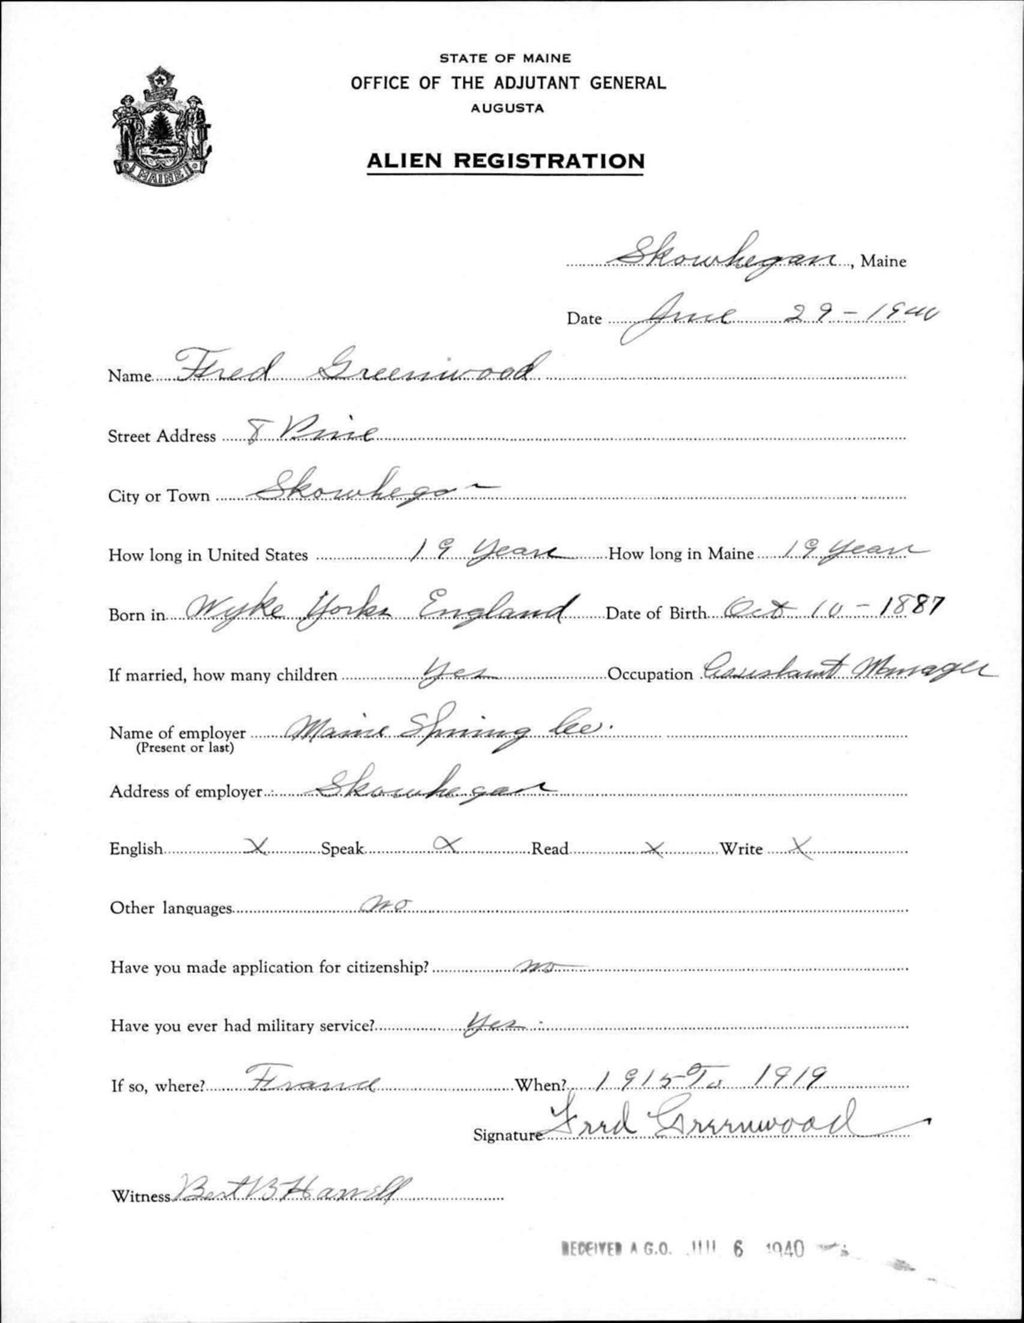 STATE OF MAINE
OFFICE OF THE ADJUTANT GENERAL
AUGUSTA
ALIEN REGISTRATION
MAINE
Skowhegan, Maine
Date June 29-1940
Name Fred Greenwood
Street Address 8 Pine
City or Town Skowhegan
How long in United States 19 Years How long in Maine 19 Years
Born in Wyke Yorks England Date of Birth Oct 10-1887
If married, how many children Yes Occupation Assistant Manager
Name of employer Maine Spinning Co.
(Present or last)
Address of employer Skowhegan
English X Speak X Read X Write X
Other languages no
Have you made application for citizenship? no
Have you ever had military service? Yes
If so, where? France When? 1915 To 1919
Signature Fred Greenwood
Witness Bert B
RECEIVED A.G.O. 6 1940